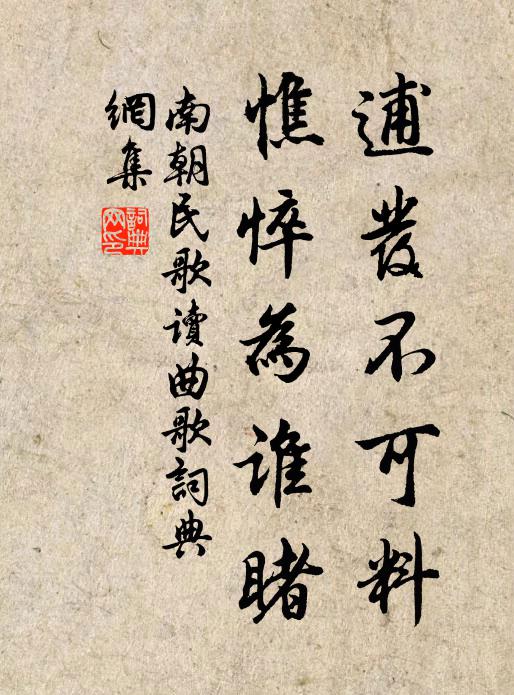 逋發不可料
憔悴為誰睹
南朝民歌讀曲歌詞典
網集
詞典網印